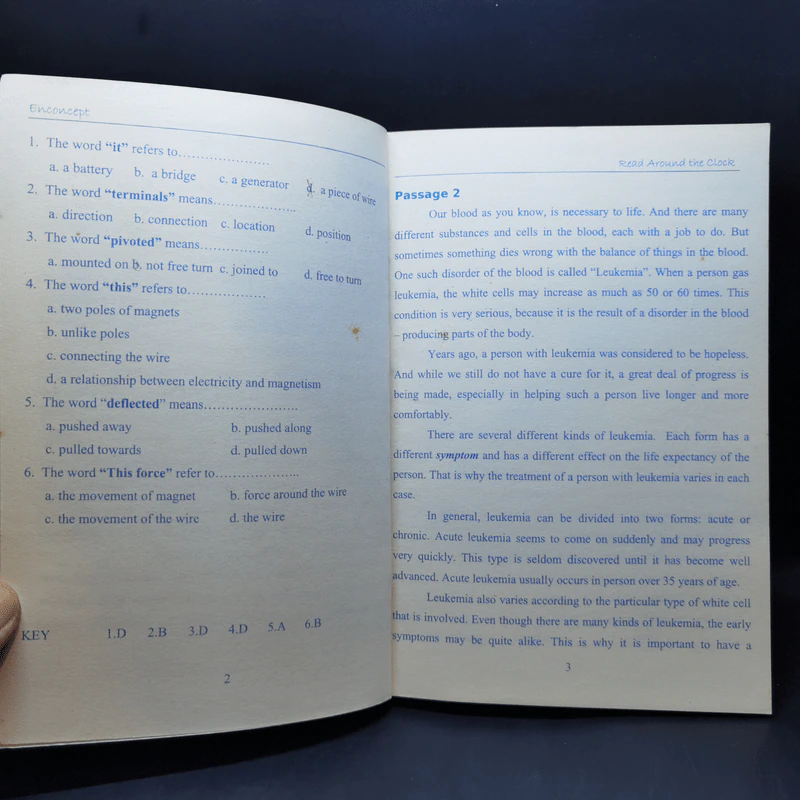 Enconcept
1. The word “it” refers to………………….
a. a battery b. a bridge c. a generator d. a piece of wire
2. The word “terminals” means……………….
a. direction b. connection c. location d. position
3. The word “pivoted” means……………
a. mounted on b. not free turn c. joined to d. free to turn
4. The word “this” refers to………………
a. two poles of magnets
b. unlike poles
c. connecting the wire
d. a relationship between electricity and magnetism
5. The word “deflected” means………………….
a. pushed away b. pushed along
c. pulled towards d. pulled down
6. The word “This force” refer to………………..
a. the movement of magnet b. force around the wire
c. the movement of the wire d. the wire
KEY 1.D 2.B 3.D 4.D 5.A 6.B
2
Read Around the Clock
Passage 2
Our blood as you know, is necessary to life. And there are many
different substances and cells in the blood, each with a job to do. But
sometimes something dies wrong with the balance of things in the blood.
One such disorder of the blood is called “Leukemia”. When a person gas
leukemia, the white cells may increase as much as 50 or 60 times. This
condition is very serious, because it is the result of a disorder in the blood
– producing parts of the body.
Years ago, a person with leukemia was considered to be hopeless.
And while we still do not have a cure for it, a great deal of progress is
being made, especially in helping such a person live longer and more
comfortably.
There are several different kinds of leukemia. Each form has a
different symptom and has a different effect on the life expectancy of the
person. That is why the treatment of a person with leukemia varies in each
case.
In general, leukemia can be divided into two forms: acute or
chronic. Acute leukemia seems to come on suddenly and may progress
very quickly. This type is seldom discovered until it has become well
advanced. Acute leukemia usually occurs in person over 35 years of age.
Leukemia also varies according to the particular type of white cell
that is involved. Even though there are many kinds of leukemia, the early
symptoms may be quite alike. This is why it is important to have a
3